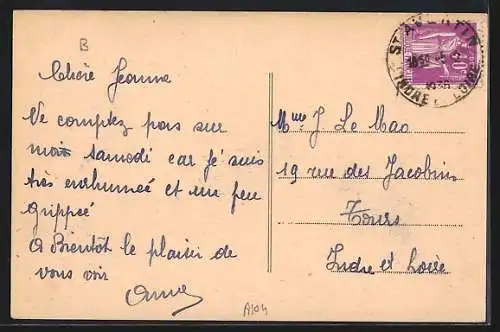 B
Chère Jeanne
Ne comptez pas sur
moi samedi car je suis
très enrhumée et un peu
grippée
A Bientôt le plaisir de
vous voir
Anne
ST AVERTIN
INDRE ET LOIRE
Mme J Le Mao
19 rue des Jacobins
Tours
Indre et Loire
A104